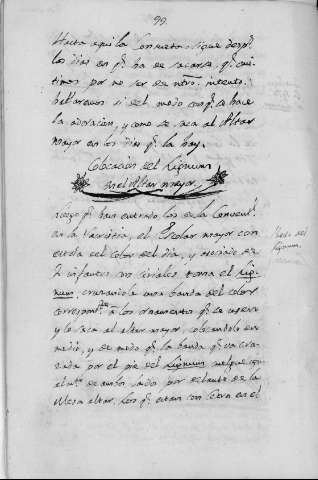 99.
Hasta aqui la Consueta: sigue despₛ.
los dias en qₑ. ha de sacarse, qₑ. omi-
timos por no ser de ntro. intento.
hablaremos si del modo con qₑ. se hace
la adoracion, y como se saca al Altar
mayor en los dias qₑ. la hay.
Colocacion del Lignum
en el Altar mayor.
Luego qₑ. han entrado los de la
en la Sacristia, el Escolar mayor con
del color del dia, y asociado de
2 infantes con ciriales toma el Lig-
num, cruzandole una banda del color
correspondte. a los ornamentos qₑ. se usan
y le saca al altar mayor, colocandole en
medio, y de modo qₑ. la banda qₑ. va cru-
zada por el pie del Lignum cuelgue con
de ambos lados por delante de la
Mesa altar. Los qₑ. estan con Cetro en el
del
Lignum.